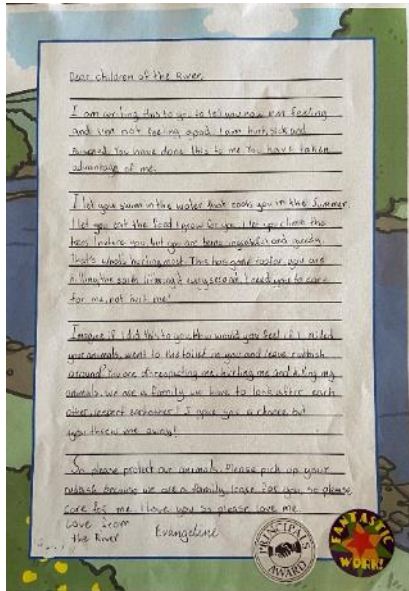 Dear children of the River,
I am writing this to you to let you now I'm feeling
and I'm not feeling good. I am hurt, sick and
You have done this to me You have taken
advantage of me.
I let you swim in the water that cools you in the Summer.
I let you eat the food I grow for you. I let you climb the
trees I nuture you, but you are being ungrateful and
That's what's hurting most. This has gone too far, you are
killing the earth every second. I need you to care
for me, not hurt me!
Imagine if I did this to you. How would you feel if I
your animals, went to the toilet in you and leave rubbish
around? You are disrespecting me, hurting me and my
animals. we are a family we have to look after each
other, respect eachother! I gave you a chance but
you threw me away!
So please protect our animals. Please pick up your
rubbish because we are a family. I care for you, so please
care for me. I love you so please love me.
Love from
the River Evangeline
PRINCIPAL'S
AWARD
FANTASTIC
WORK!